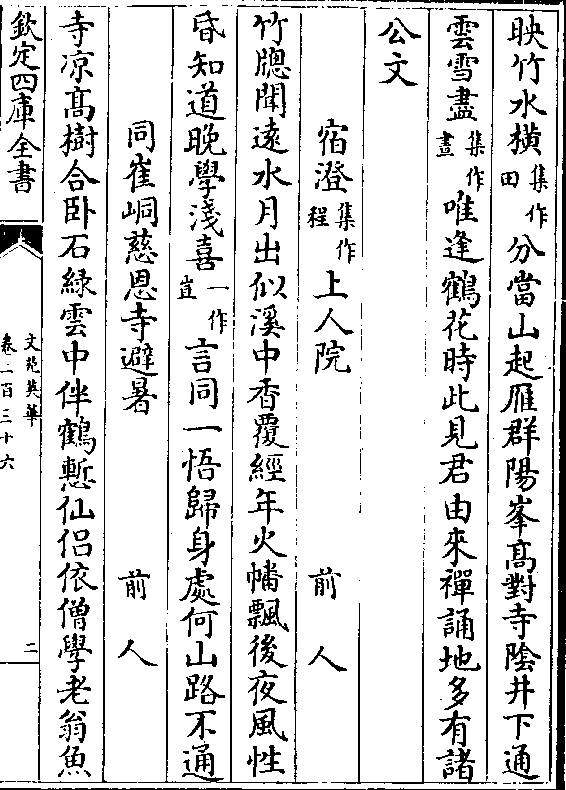 映竹水橫集作田分當山起雁群陽峯高對寺陰井下通
雲雪盡集作晝唯逢鶴花時此見君由來禪誦地多有諸
公文
宿澄集作程上人院 前人
竹牕聞遠水月出似溪中香覆經年火幡飄後夜風性
昏知道晚學淺喜一作豈言同一悟歸身處何山路不通
同崔峒慈恩寺避暑 前人
寺凉高樹合卧石緑雲中伴鶴慙仙侣依僧學老翁魚
欽定四庫全書
文苑英華
卷二百三十六
二